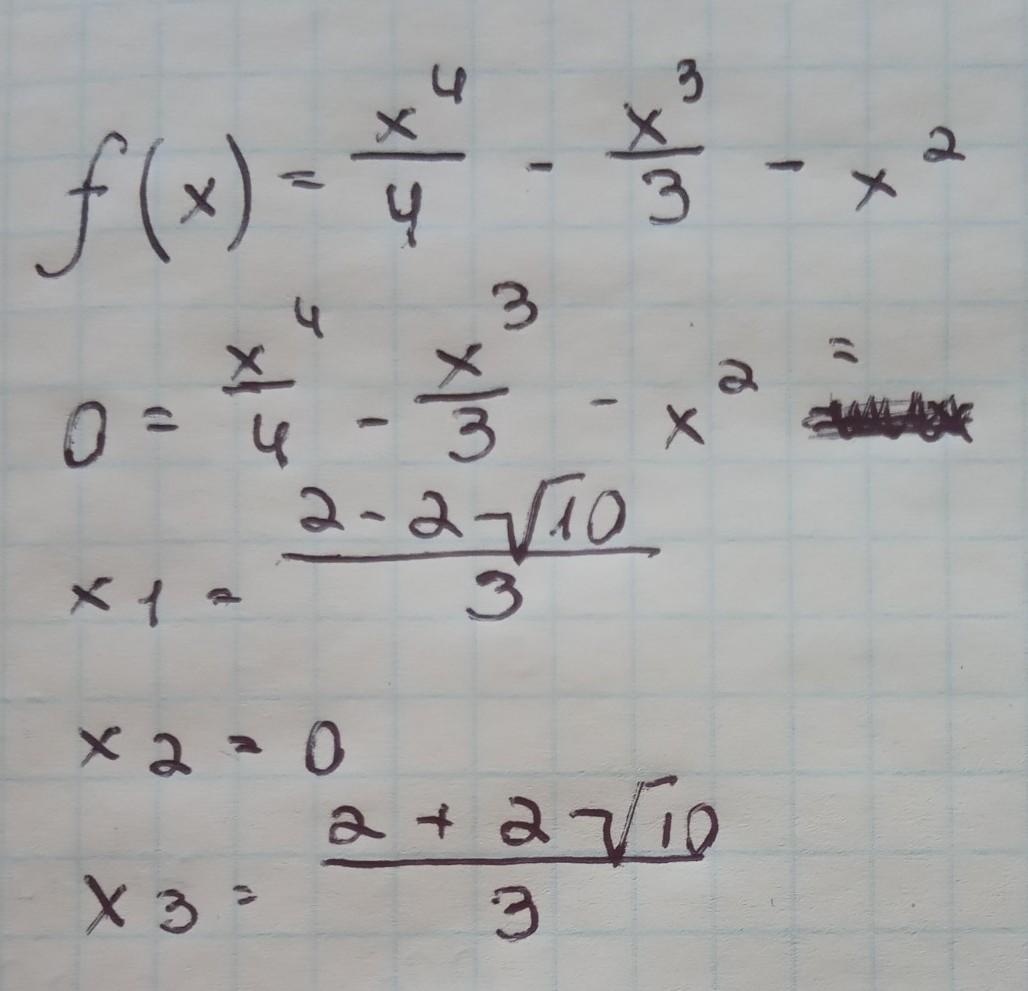 f(x) = x^4/4 - x^3/3 - x^2
0 = x^4/4 - x^3/3 - x^2 =
x1 = (2 - 2√10)/3
x2 = 0
x3 = (2 + 2√10)/3